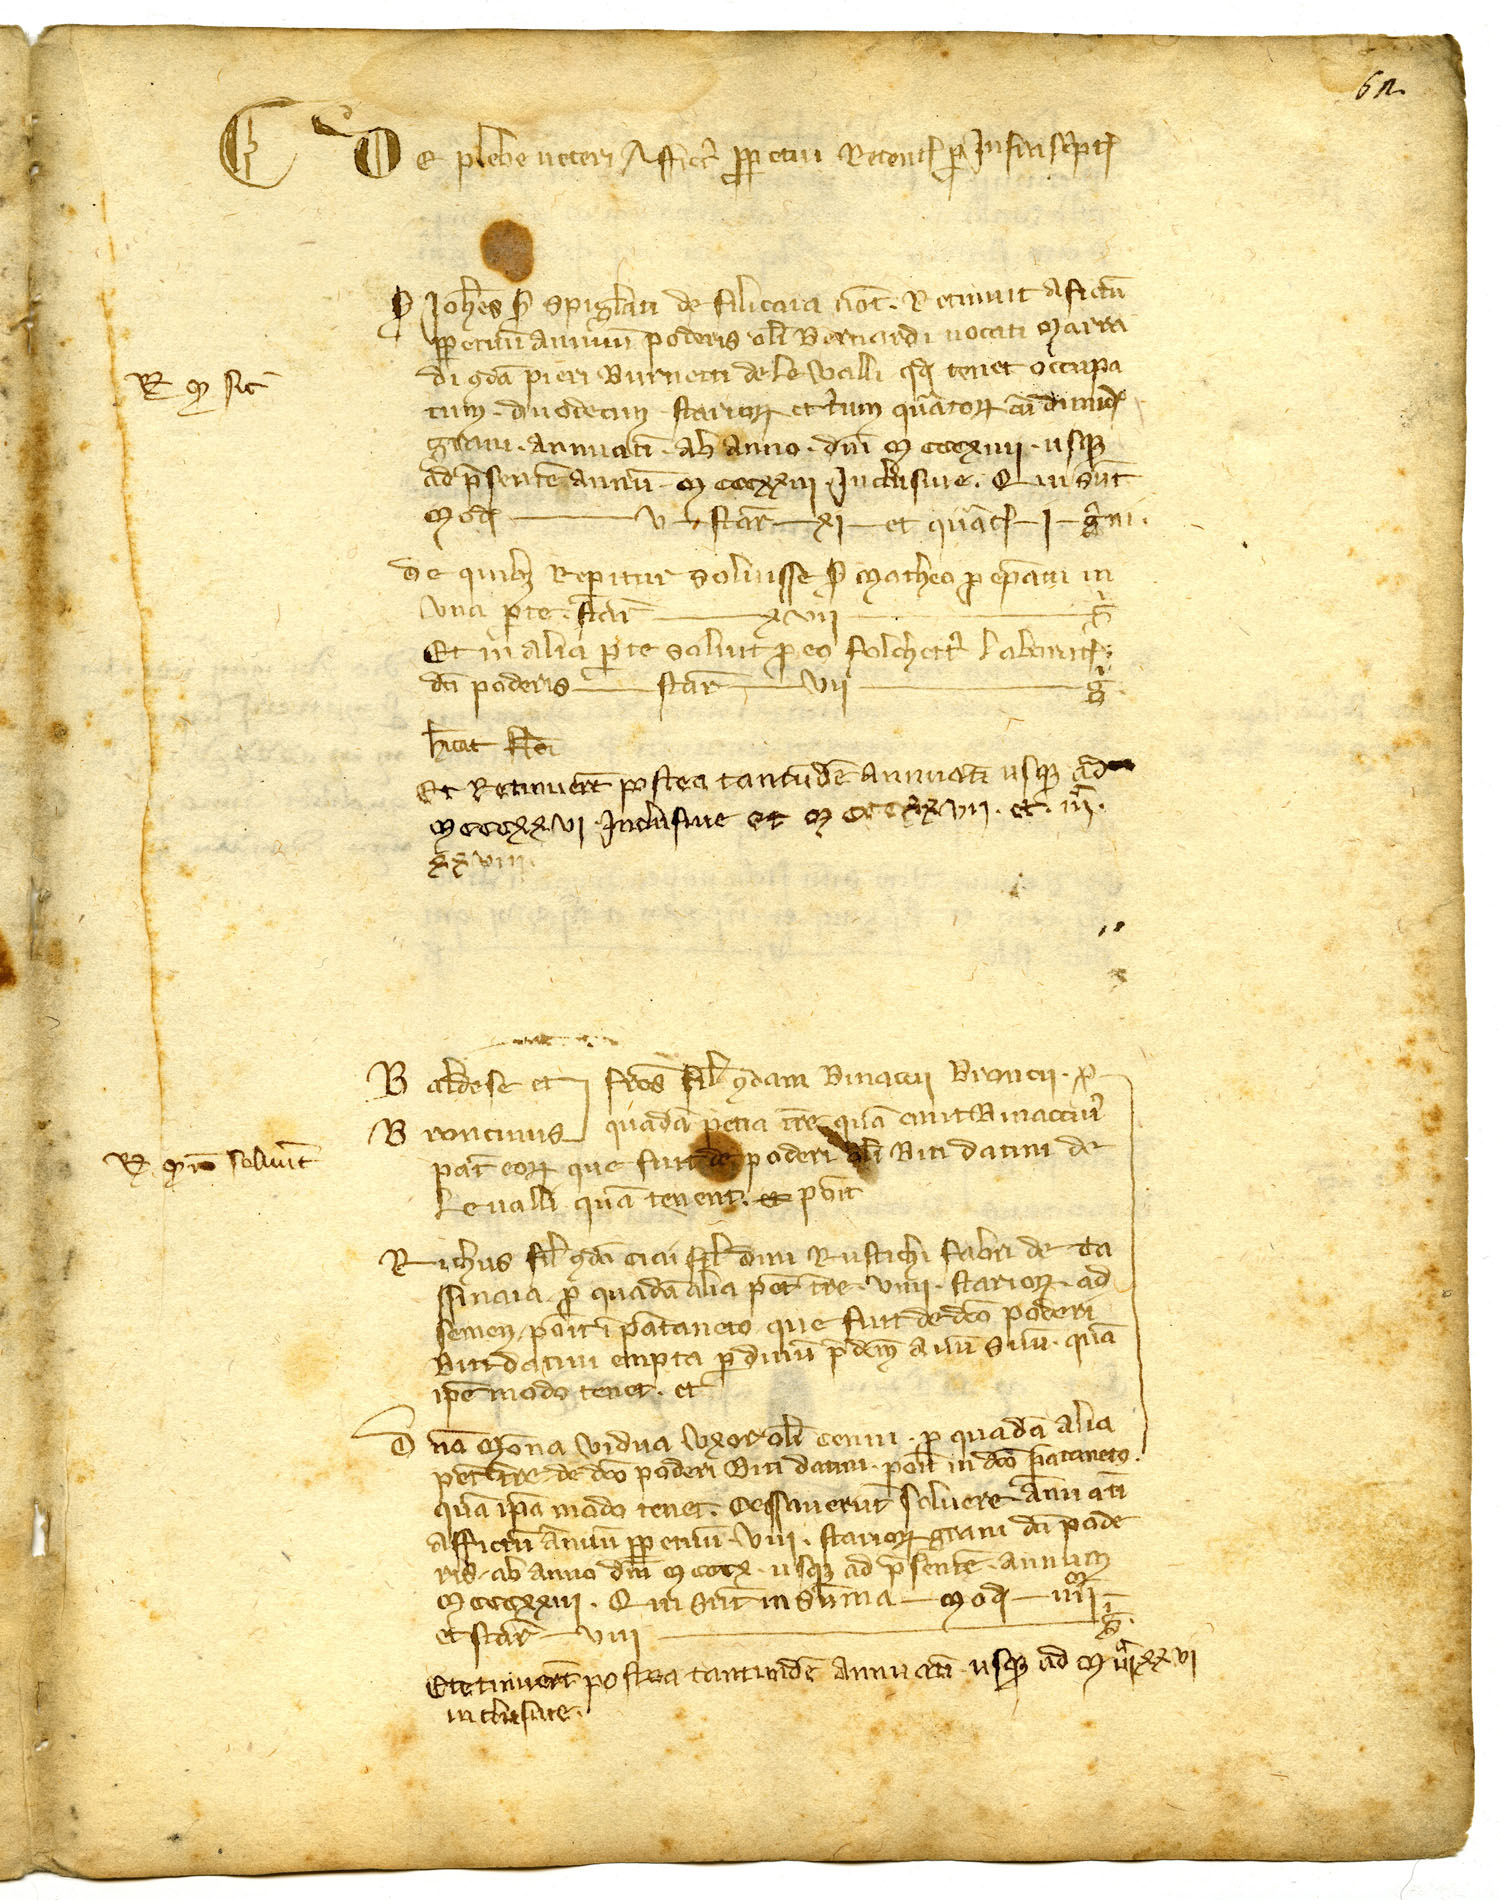 62
De plebe veteri Affict' ppetui Retent p Infrascript
S Iohēs S Spigliati de filicaia not. Retinuit afictū
ppetuū annuū poderis oli Bernardi vocati Marra
R M sic
di qdā pieri Burnetti de le valli qd tenet occupa
tum. duodecim starior et trium quator cū dimid
grani. annuati. ab anno. dni M cccxiiii. usq
ad psentē annū. M cccxxiii Inclusive. Qui sūt
Mod v star xi et quart I grni.
De quib Reperitur solvisse S Matheo p epatu in
una pte. star xvii g
Et in alia pte solvit p eo folchett' laborat
dti poderis star vii g
Et Retinuert postea tantūdē annuati usq ad
M cccxxvi Inclusive et M cccxxvii. et.
xxviii.
Baldese et frēs fil qdam Binaccii Broncii. p
Broncinus quadā petia tre quā emit Binacciu'
R Mō solvūt
pat eor que fuit de poderi oli Biti datini de
le valli quā tenent. et poit
Richus fil qdā cici fil dini Rustichi fabri de Ca
ssinaia p quadā alia pet tre. viiii. starior. ad
semen poit i pataneto que fuit de dco poderi
Biti datini empta p dinū pdcm avū suū. quā
ipe modo tenet. et
Dna Mona vidua uxor oli cenni. p quadā alia
pet tre de dco poderi Biti datini. poit in dco pataneto.
quā ipa modo tenet. Cessaverūt solvere annuati
affictū annuū ppetuū. viii. starior grani dti pode
ris. ab anno dni M cccx. usq ad psentē. annum
M cccxxiii. Qui sūt in sūma Mod iiii
et star viii g
Retinuert postea tantundē annuati usq ad M xxvi
inclusive.